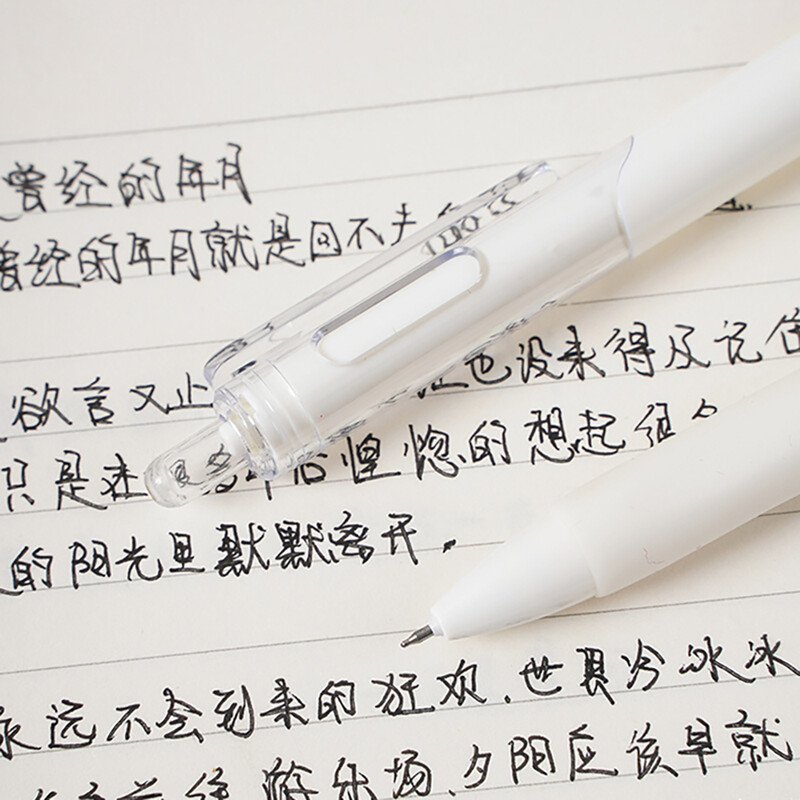 曾经的年月
曾经的年月就是回不去
欲言又止 也没来得及记住
只是在 年后惶惚的想起
的阳光里默默离开.
永远不会到来的狂欢.世界冷冰冰
游乐场.夕阳应该早就